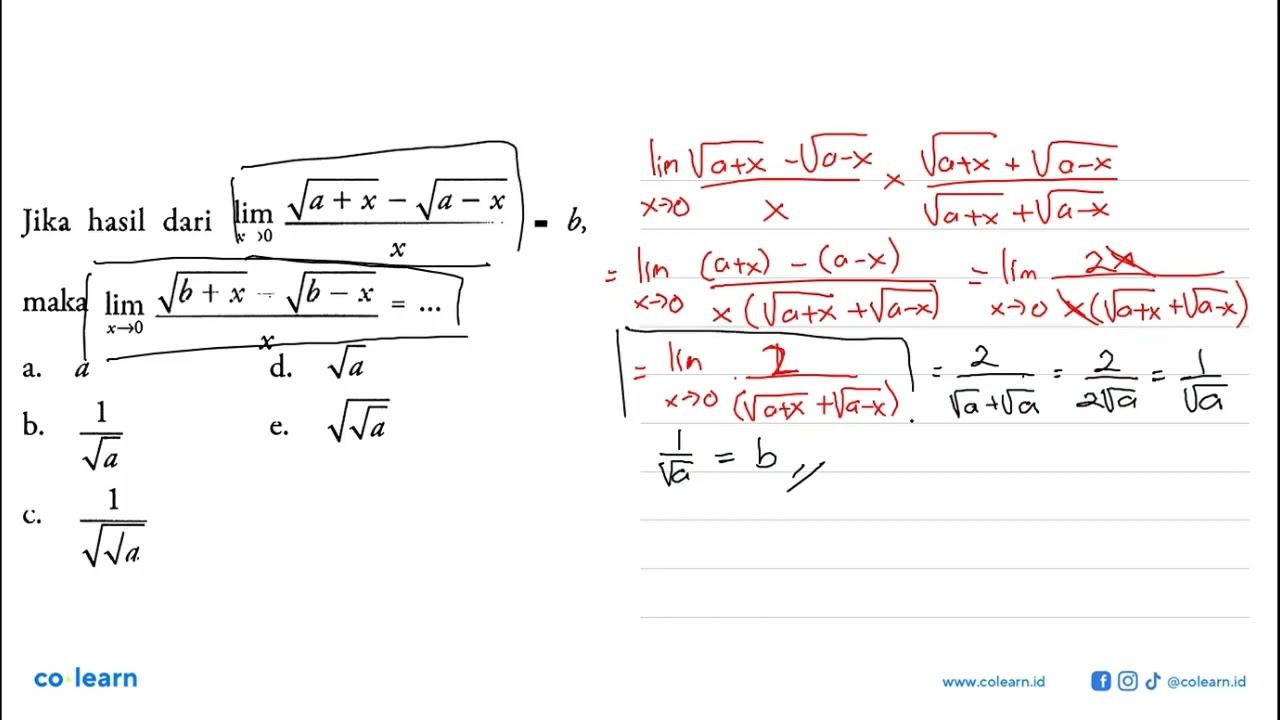 Jika hasil dari lim x→0 (√(a + x) − √(a − x))/x = b,
maka lim x→0 (√(b + x) − √(b − x))/x = ...
a. a
b. 1/√a
c. 1/√√a
d. √a
e. √√a
lim x→0 (√(a+x) − √(a−x))/x × (√(a+x) + √(a−x))/(√(a+x) + √(a−x))
= lim x→0 ((a+x) − (a−x))/(x(√(a+x) + √(a−x))) = lim x→0 2x/(x(√(a+x) + √(a−x)))
= lim x→0 2/(√(a+x) + √(a−x)) = 2/(√a + √a) = 2/(2√a) = 1/√a
1/√a = b //
co learn
www.colearn.id
@colearn.id